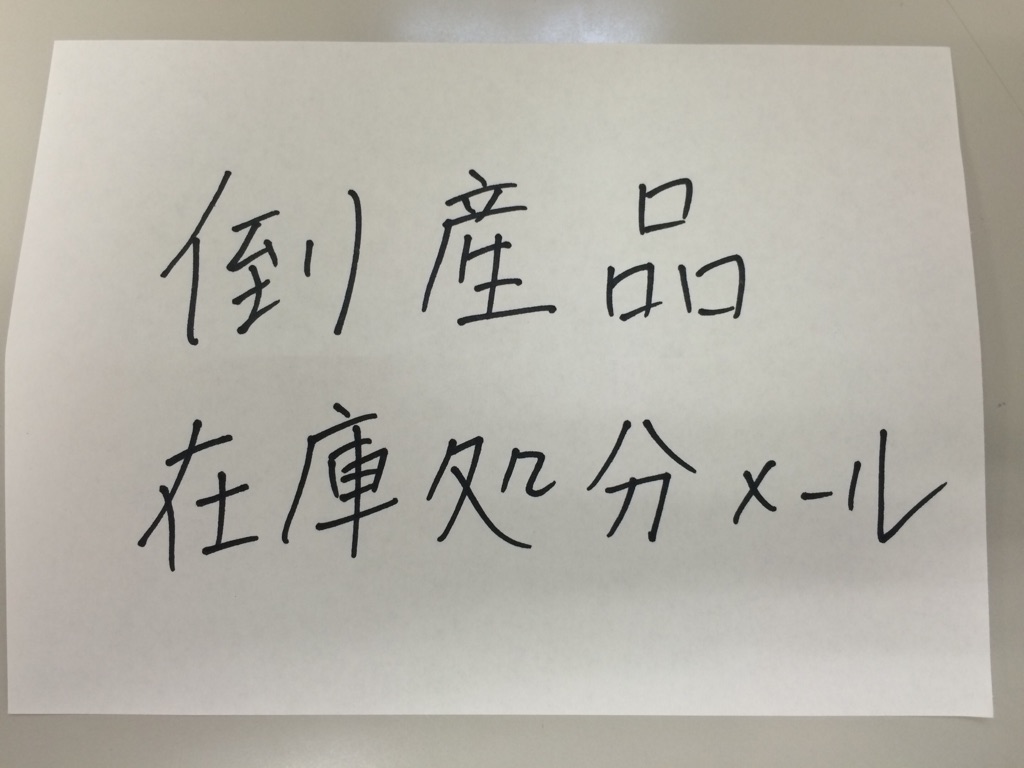 倒産品
在庫処分メール